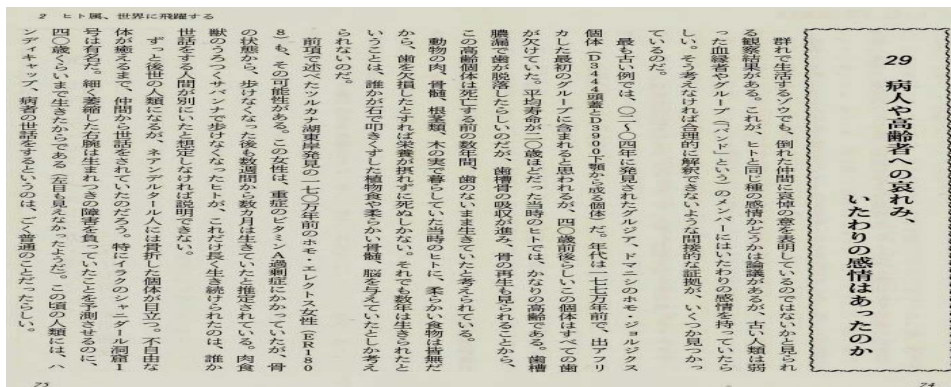 2 ヒト属、世界に飛躍する
29 病人や高齢者への哀れみ、
いたわりの感情はあったのか
群れで生活するゾウでも、倒れた仲間に哀悼の意を表明しているのではないかと見られ
る観察結果がある。これが、ヒトと同じ種の感情かどうかは論議があるが、古い人類は弱
った血縁者やグループ(「バンド」という)のメンバーにはいたわりの感情を持っていたら
しい。そう考えなければ合理的に解釈できないような間接的な証拠が、いくつか見つかっ
ているのだ。
最も古い例では、〇二〜〇四年に発見されたグルジア、ドマニシのホモ・ジョルジクス
個体(D3444頭蓋とD3900下顎から成る個体)だ。年代は一七七万年前で、出アフリ
カした最初のグループに含まれると思われるが、四〇歳前後らしいこの個体はすべての歯
が欠けていた。平均寿命が二〇歳ほどだった当時のヒトでは、かなりの高齢である。歯槽
膿漏で歯が脱落したらしいのだが、歯槽骨の吸収が進み、骨の再生も見られることから、
この高齢個体は死亡する前の数年間、歯のないまま生きていたと考えられている。
動物の肉、骨髄、根茎類、木の実で暮らしていた当時のヒトに、柔らかい食物は皆無だ
から、歯を欠損したとすれば栄養が摂れずに死ぬしかない。それでも数年は生きられたと
いうことは、誰かが石で叩きくずした植物食や柔らかい骨髄、脳を与えていたとしか考え
られないのだ。
前項で述べたツルカナ湖東岸発見の一七〇万年前のホモ・エレクトス女性(ER180
8)も、その可能性がある。この女性は、重症のビタミンA過剰症にかかっていたが、骨
の状態から、歩けなくなった後も数週間から数カ月は生きていたと推定されている。肉食
獣のうろつくサバンナで歩けなくなったヒトが、これだけ長く生き続けられたのは、誰か
世話をする人間が別にいたと想定しなければ説明できない。
ずっと後世の人類になるが、ネアンデルタール人には骨折した個体が目立つ。不自由な
体が癒えるまで、仲間から世話をされていたのだろう。特にイラクのシャニダール洞窟1
号は有名だ。細く萎縮した右腕は生まれつきの障害を負っていたことを予測させるのに、
四〇歳くらいまで生きたからである(左目も見えなかったようだ)。この頃の人類には、ハ
ンディキャップ、病者の世話をするというのは、ごく普通のことだったらしい。
75
74